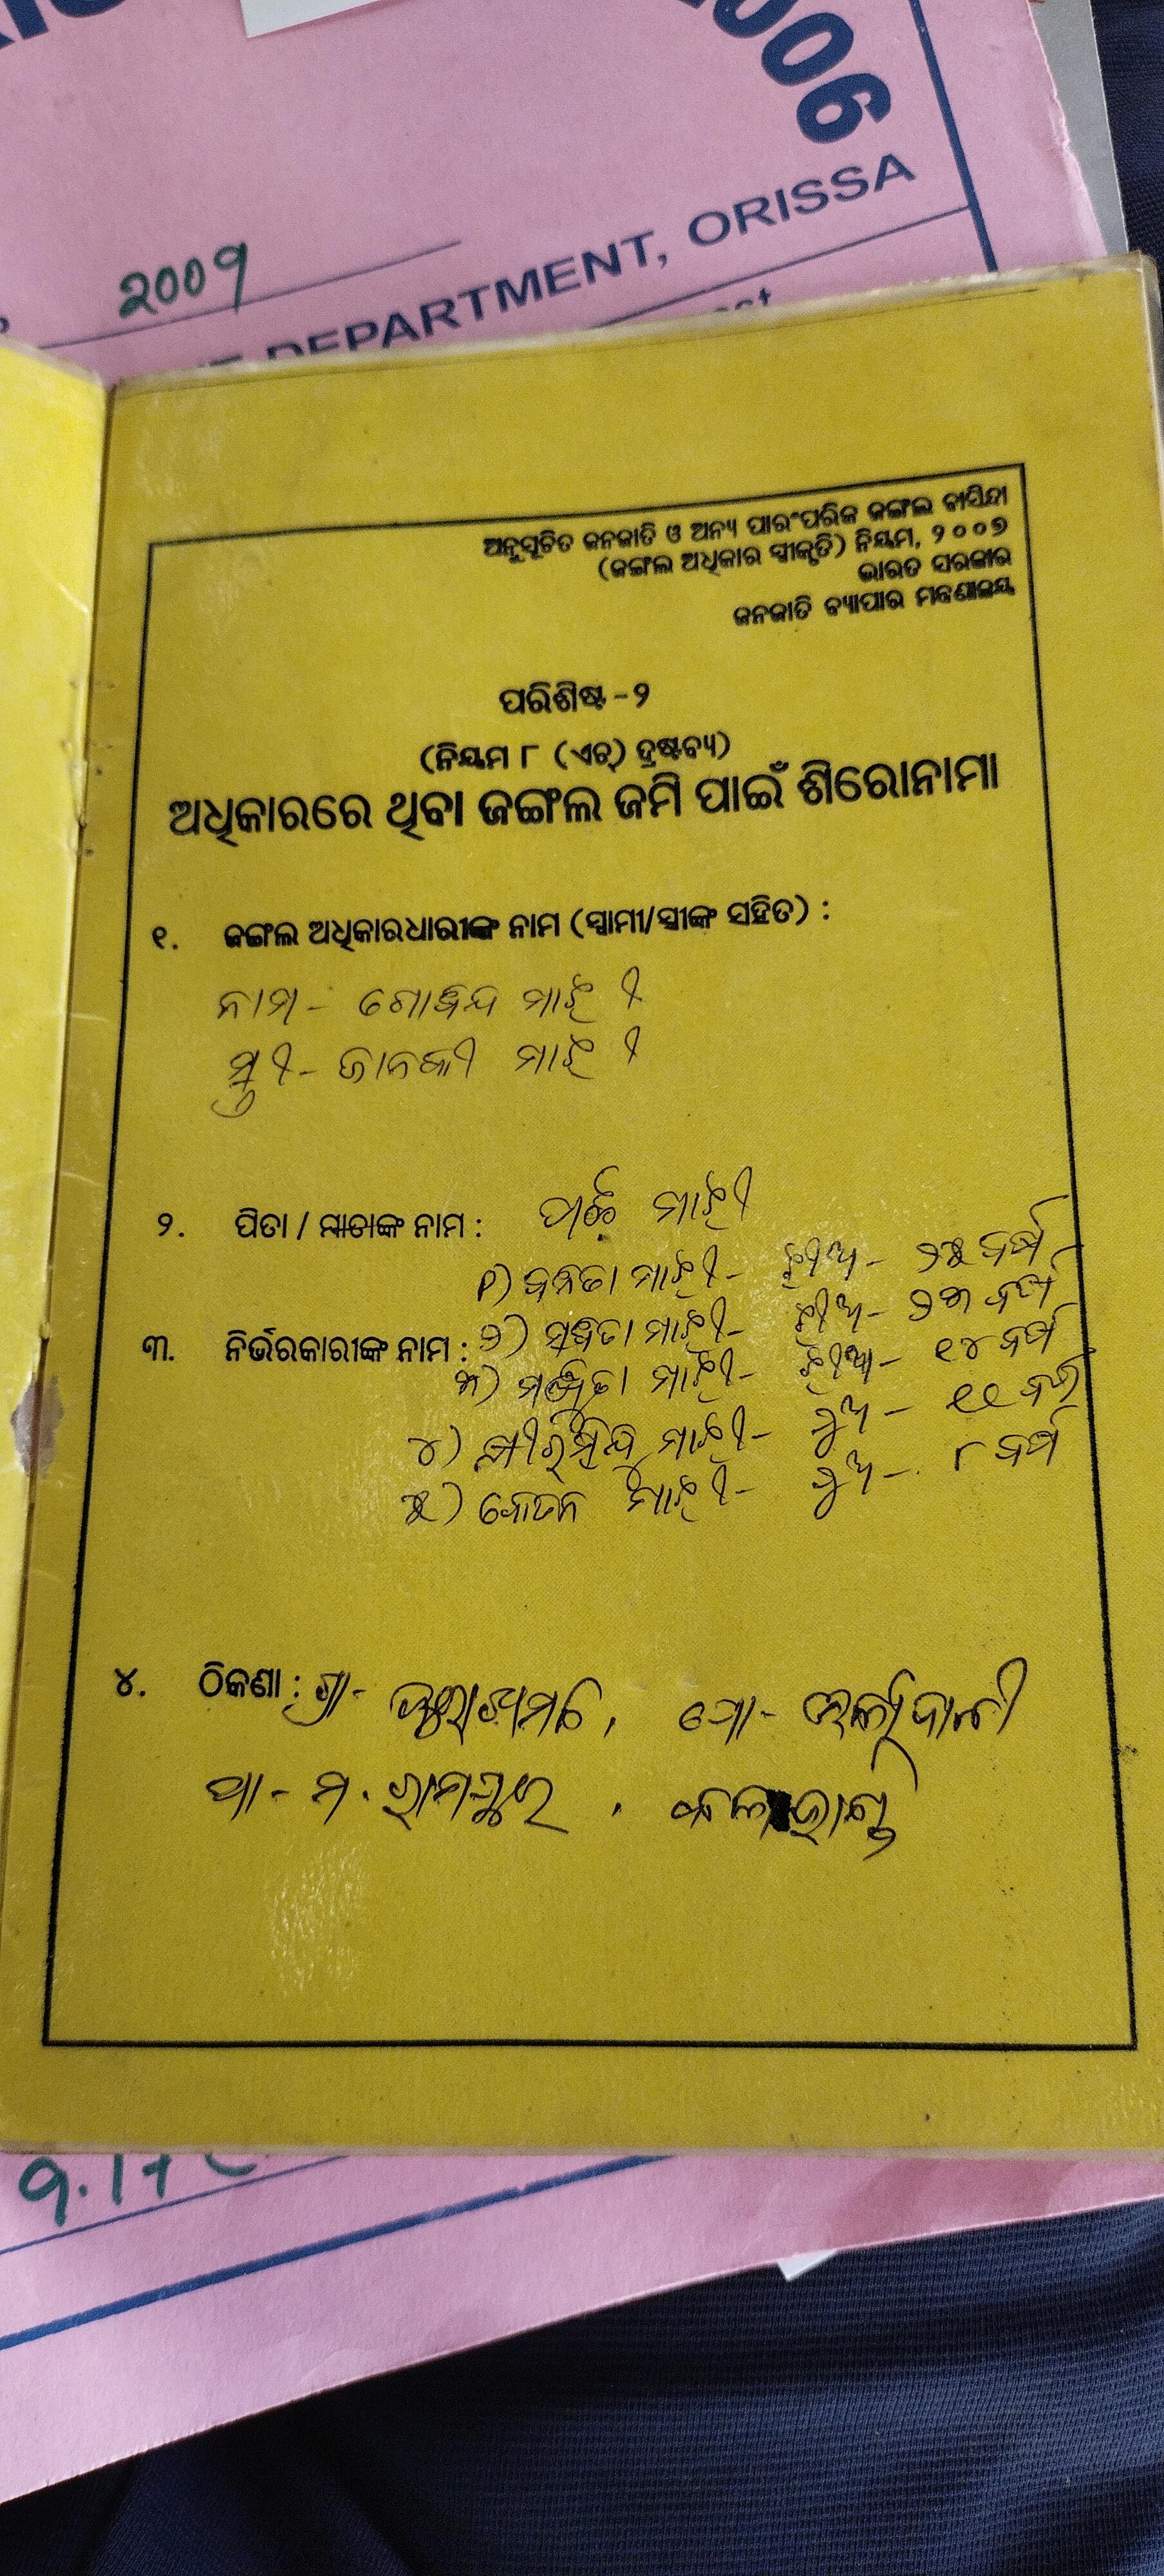 2006
DEPARTMENT, ORISSA
2009
ଅନୁସୂଚିତ ଜନଜାତି ଓ ଅନ୍ୟ ପାରଂପରିକ ଜଙ୍ଗଲ ବାସିନ୍ଦା
(ଜଙ୍ଗଲ ଅଧିକାର ସ୍ୱୀକୃତି) ନିୟମ, ୨୦୦୭
ଭାରତ ସରକାର
ଜନଜାତି ବ୍ୟାପାର ମନ୍ତ୍ରଣାଳୟ
ପରିଶିଷ୍ଟ -୨
(ନିୟମ ୮ (ଏଚ୍) ଦ୍ରଷ୍ଟବ୍ୟ)
ଅଧିକାରରେ ଥିବା ଜଙ୍ଗଲ ଜମି ପାଇଁ ଶିରୋନାମା
୧. ଜଙ୍ଗଲ ଅଧିକାରଧାରୀଙ୍କ ନାମ (ସ୍ୱାମୀ/ସ୍ତ୍ରୀଙ୍କ ସହିତ) :
ନାମ - ଗୋବିନ୍ଦ ମାଝୀ
ସ୍ତ୍ରୀ - ଜାନକୀ ମାଝୀ
୨. ପିତା / ମାତାଙ୍କ ନାମ : ମାଝୀ
୧) ବନିତା ମାଝୀ - ଝିଅ - ୨୫ ବର୍ଷ
୩. ନିର୍ଭରକାରୀଙ୍କ ନାମ : ୨) ସବିତା ମାଝୀ - ଝିଅ - ୨୩ ବର୍ଷ
୩) ମାଝୀ - ଝିଅ - ୧୪ ବର୍ଷ
୪) ମାଝୀ - ପୁଅ - ୧୧ ବର୍ଷ
୫) ମାଝୀ - ପୁଅ - ୮ ବର୍ଷ
୪. ଠିକଣା : ଗ୍ରା - ପୋ -
ଥା - ମ. ରାମପୁର, କଳାହାଣ୍ଡି